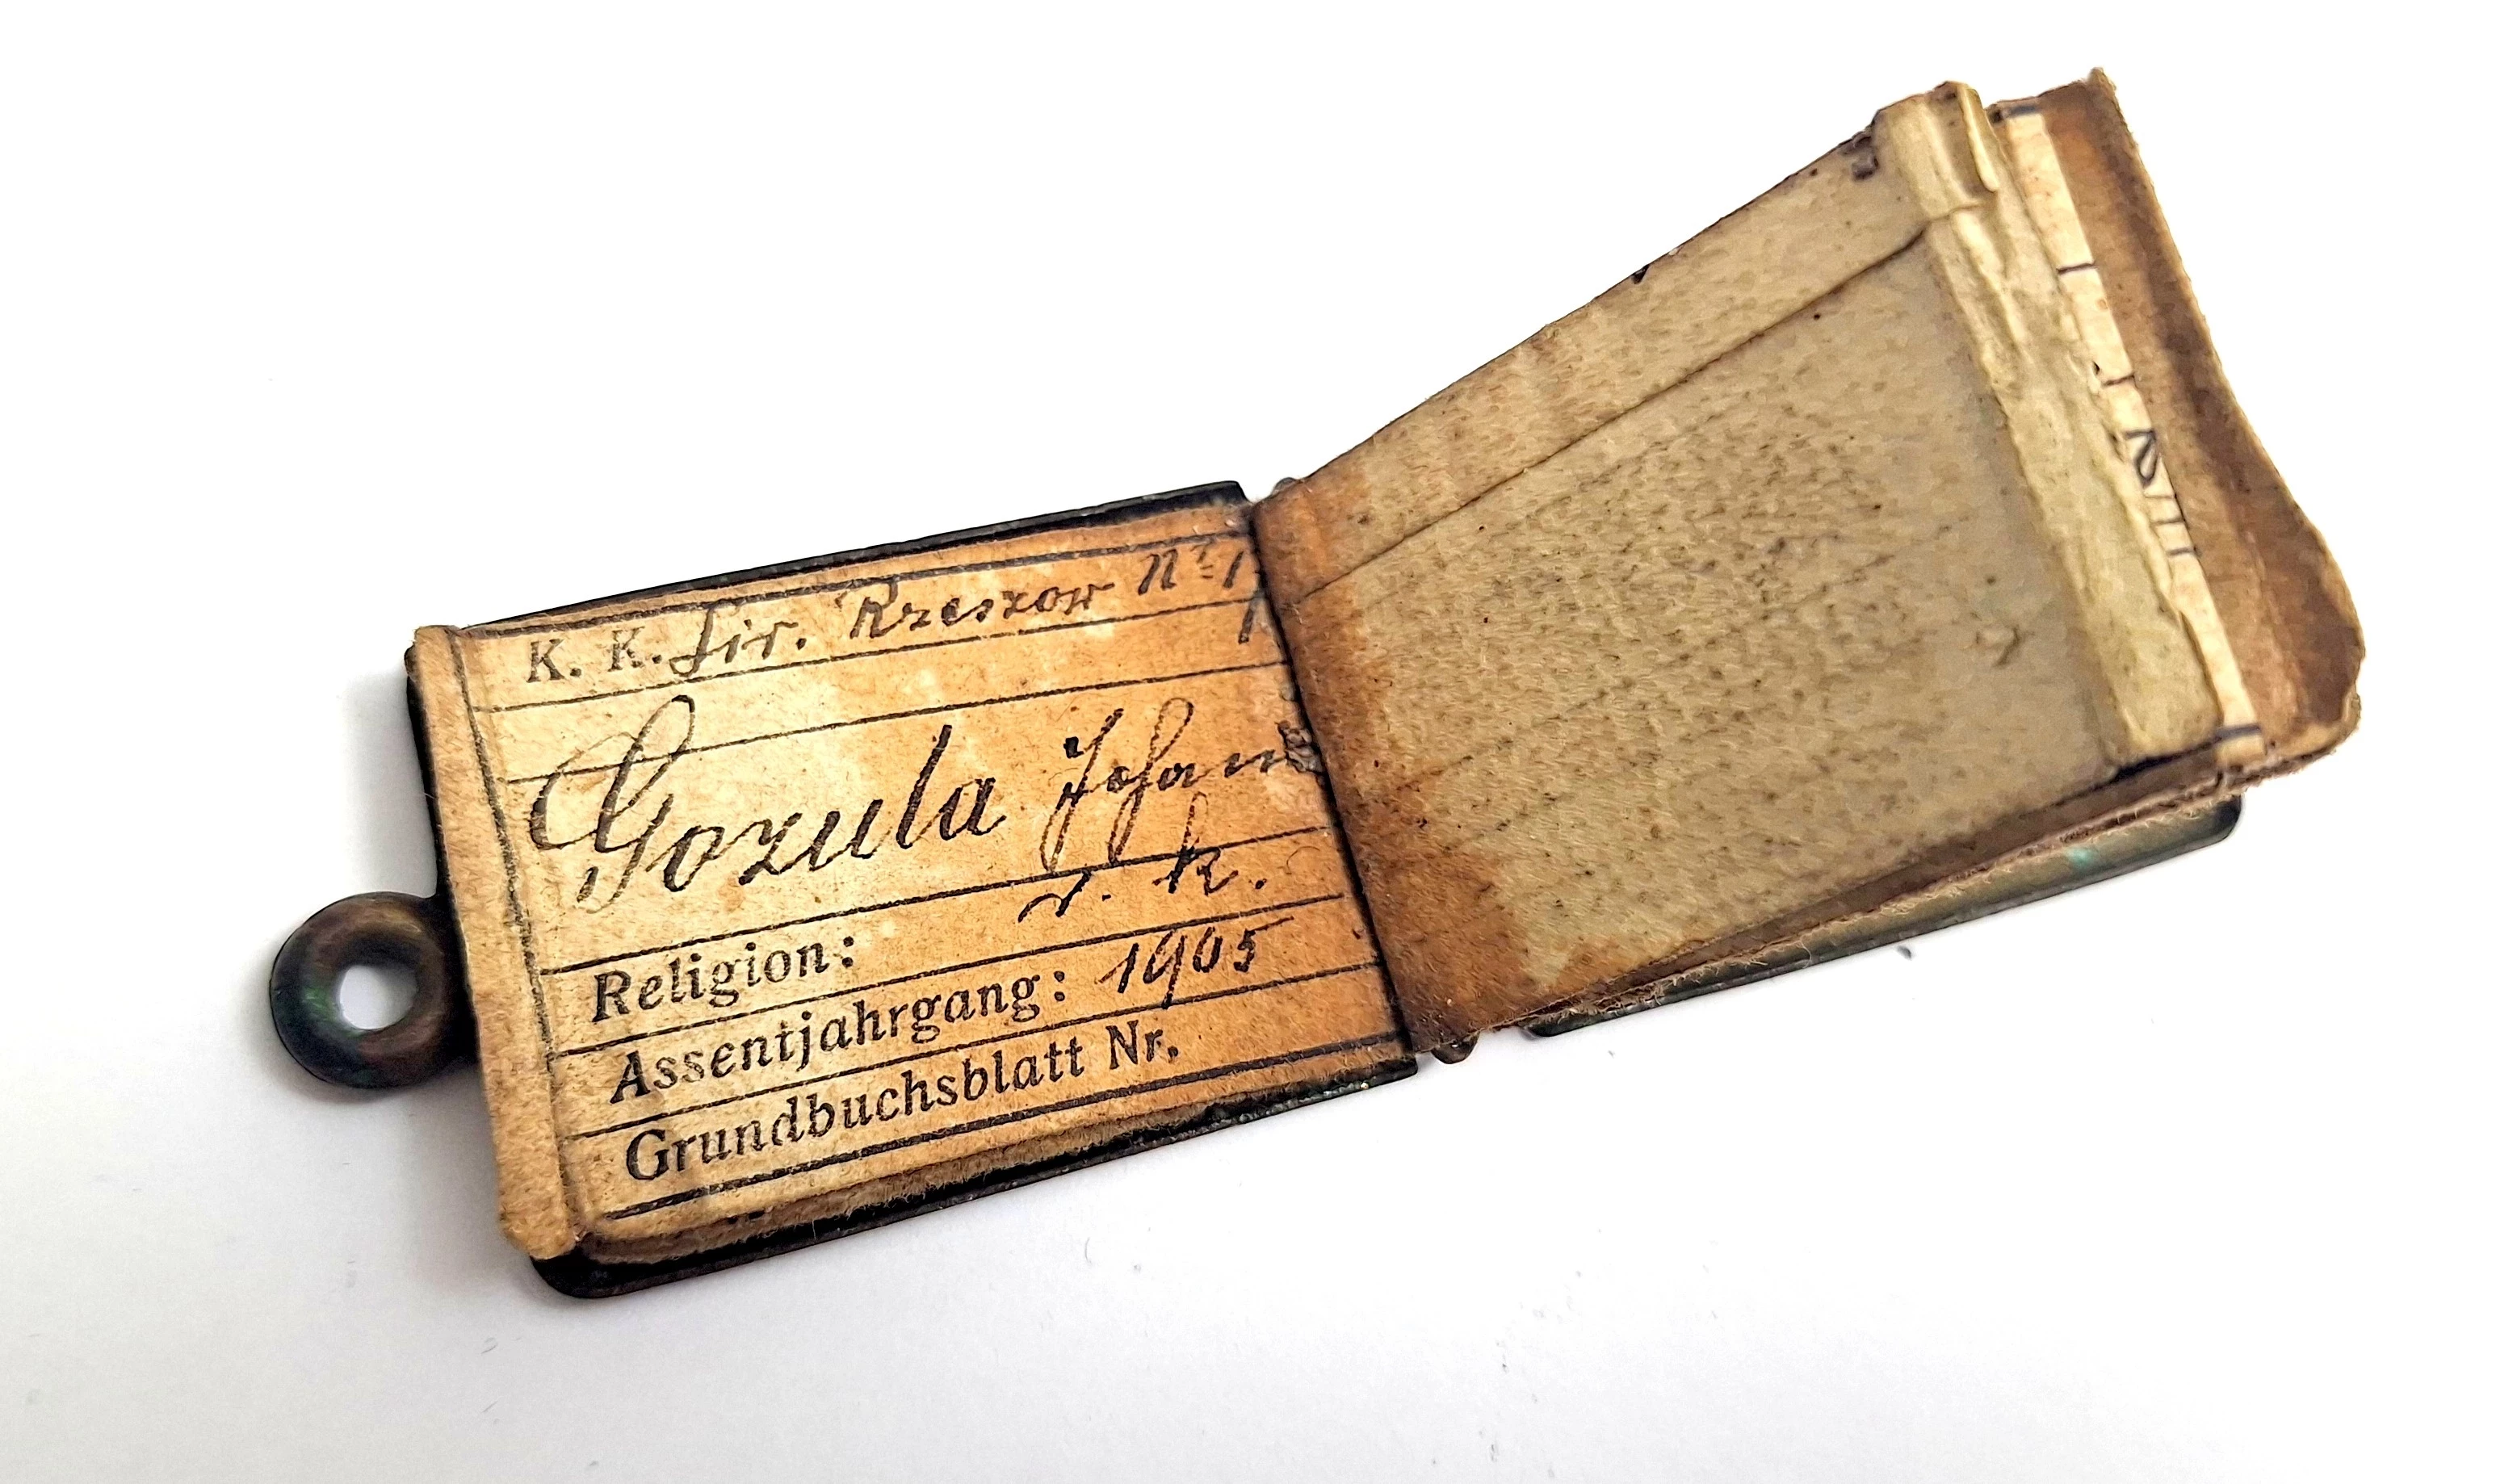 K. K. Lir. Rzeszow No 17
Gozula Johann
r. k.
Religion:
Assentjahrgang: 1905
Grundbuchsblatt Nr.